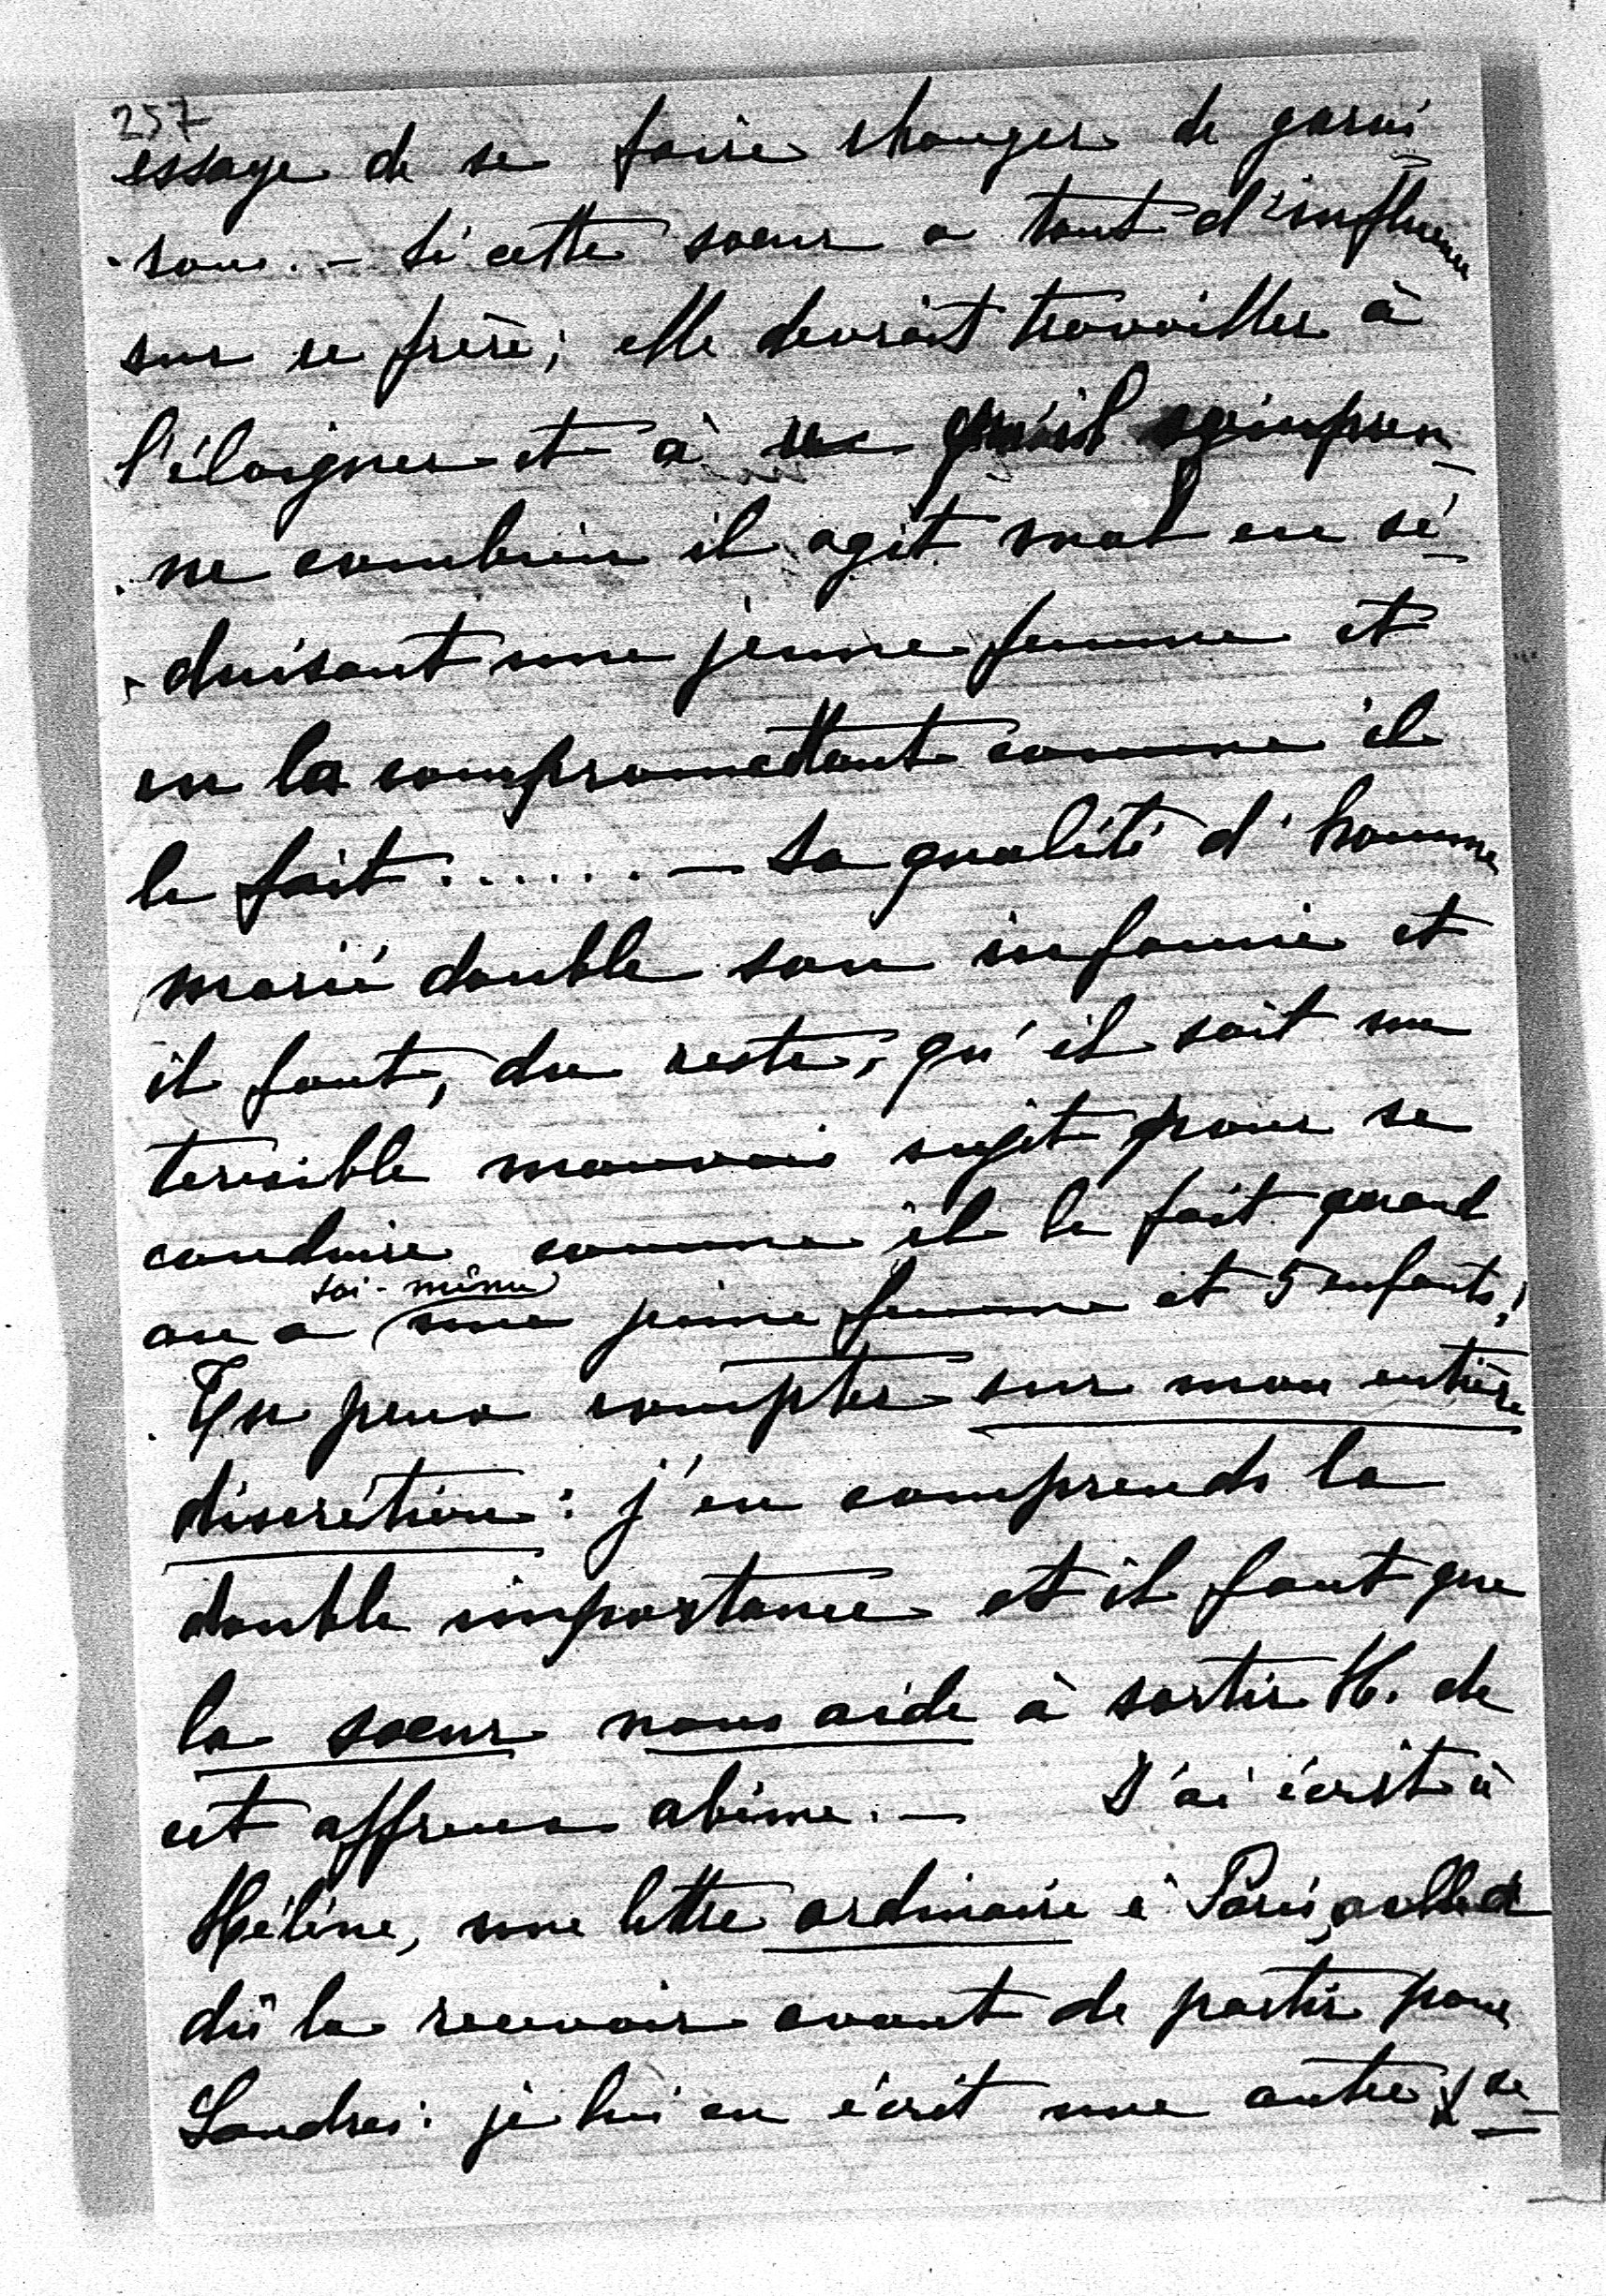 257
essaye de se faire changer de garni-
-son. - Si cette soeur a tant d'influence
sur ce frère; elle devrait travailler à
l'éloigner et à ce qu'il compren-
-ne combien il agit mal en sé-
-duisant une jeune femme et
en la compromettant comme il
le fait ...... - Sa qualité d'homme
marié double son infamie et
il faut, du reste, qu'il soit un
terrible mauvais sujet pour se
conduire comme il le fait quand
soi-même
on a une jeune femme et 5 enfants!
Tu peux compter sur mon entière
discrétion: j'en comprends la
double importance et il faut que
la soeur nous aide à sortir H. de
cet affreux abîme. - J'ai écrit à
Hélène, une lettre ordinaire à Paris, elle a
dû la recevoir avant de partir pour
Londres: je lui en écrit une autre